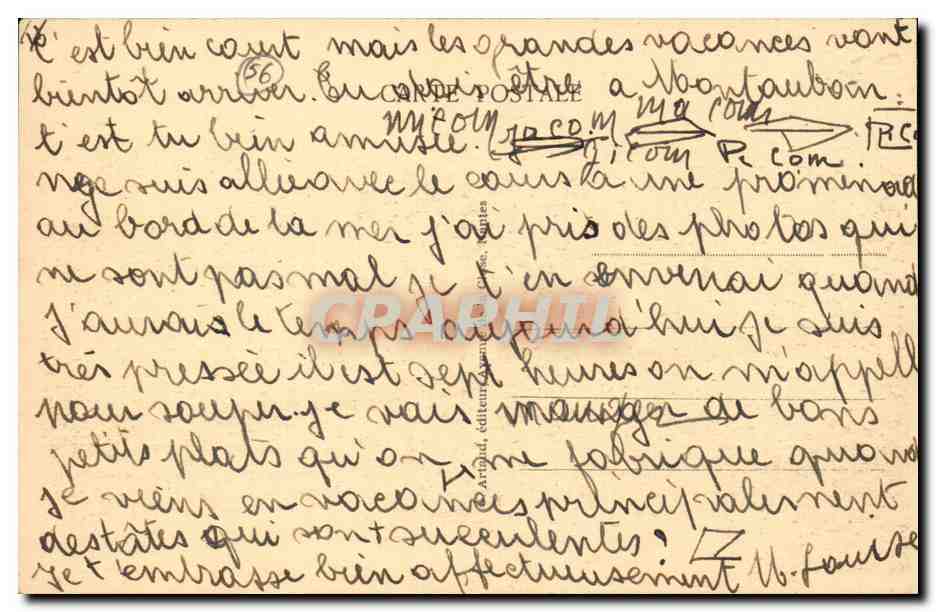 c'est bien court mais les grandes vacances vont
bientôt arriver. tu dois être a Montauban.
56
CARTE POSTALE
t'est tu bien amusée.
ma com
gi com
Pi com.
je suis allée avec le cours a une promenad
au bord de la mer j'ai pris des photos qui
ne sont pas mal je t'en enverrai quand
j'aurais le temps aujourd'hui je suis
très pressée il est sept heures on m'appell
pour souper. je vais manger de bons
petits plats qu'on me fabrique quand
je viens en vacances principalement
des qui sont succulentes.
je t'embrasse bien affectueusement M. Louise
Artaud, éditeur, Nantes
CPAPHIL